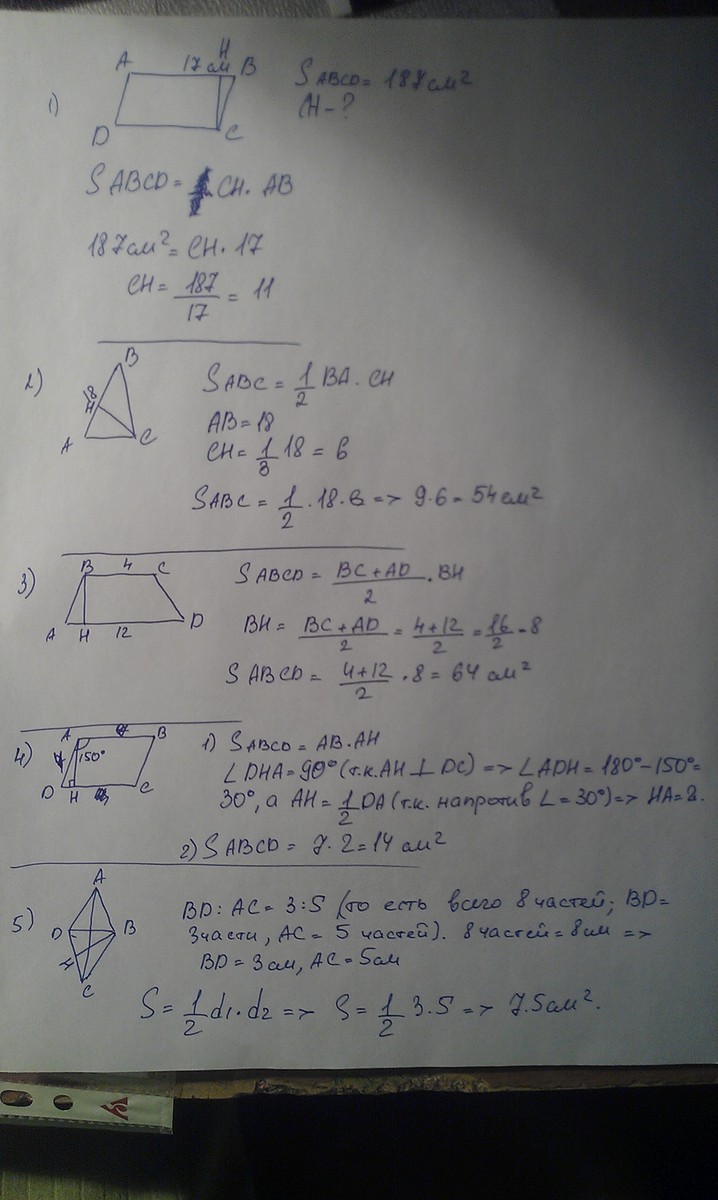 1)
A 17 см H B
D C
S ABCD = 187 см²
CH - ?
S ABCD = CH · AB
187 см² = CH · 17
CH = 187/17 = 11
2)
B
18
H
A C
S ABC = 1/2 BA · CH
AB = 18
CH = 1/3 18 = 6
S ABC = 1/2 · 18 · 6 => 9 · 6 = 54 см²
3)
B 4 C
A H 12 D
S ABCD = BC + AD/2 · BH
BH = BC + AD/2 = 4 + 12/2 = 16/2 = 8
S ABCD = 4 + 12/2 · 8 = 64 см²
4)
A B
150°
D H C
1) S ABCD = AB · AH
∠ DHA = 90° (т.к. AH ⊥ DC) => ∠ ADH = 180° - 150° =
30°, а AH = 1/2 DA (т.к. напротив ∠ = 30°) => HA = 2.
2) S ABCD = 7 · 2 = 14 см²
5)
A
D B
4
C
BD : AC = 3 : 5 (то есть всего 8 частей; BD =
3 части, AC = 5 частей). 8 частей = 8 см =>
BD = 3 см, AC = 5 см
S = 1/2 d1 · d2 => S = 1/2 3 · 5 => 7.5 см².